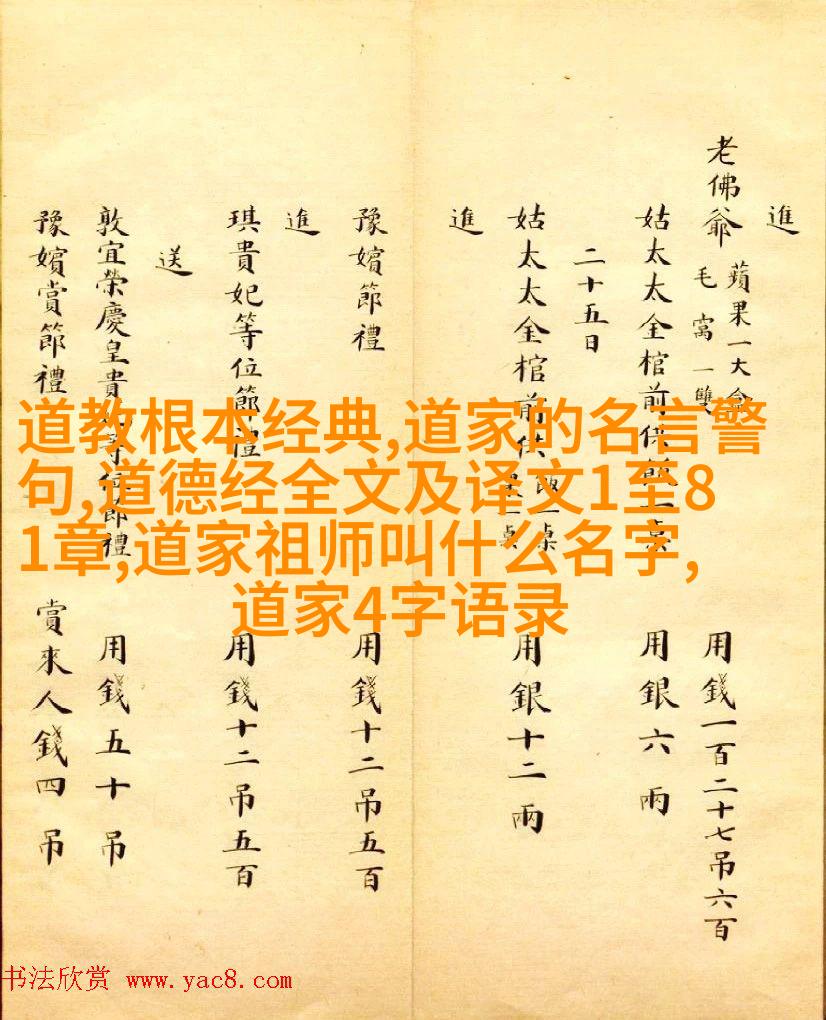 進
老佛爺
蘋果一大
毛窩一雙
用錢一百二十七吊六百
姑太太金棺前供飯一桌 用銀六兩
二十五日
姑太太金棺前供
飯一桌
一桌
用銀十二兩
進
豫嬪節禮 用錢十二吊五百
進
琪貴妃等位節禮 用錢十二吊五百
送
敦宜榮慶皇貴妃等位節禮 用錢五十吊
豫嬪賞節禮 賞來人錢四吊
道教根本经典,道家的名言警
句,道德经全文及译文1至8
1章,道家祖师叫什么名字,
道家4字语录
书法欣赏 www.yac8.com